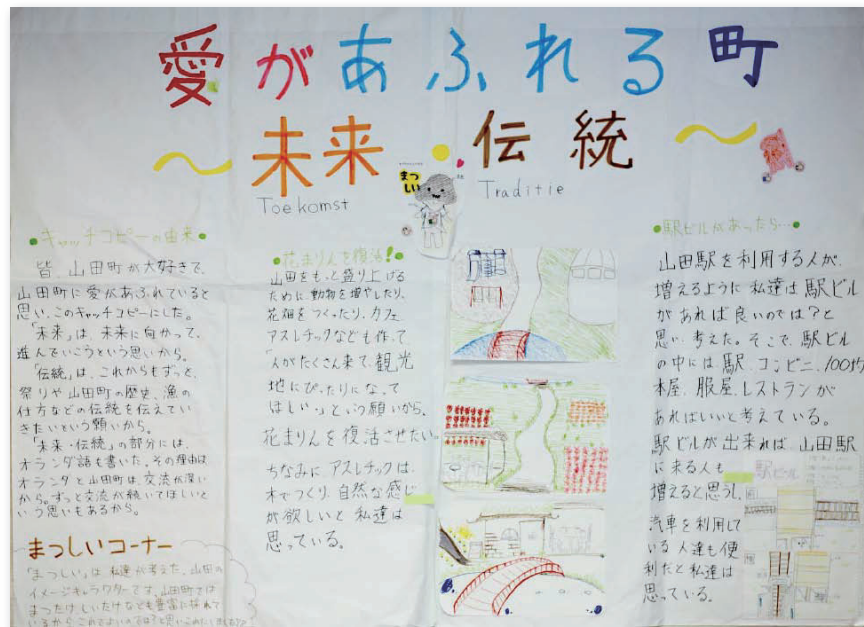 愛があふれる町
～未来・伝統～
Toekomst
Traditie
まつしい
●キャッチコピーの由来●
皆、山田町が大好きで、
山田町に愛があふれていると
思い、このキャッチコピーにした。
「未来」は、未来に向かって、
進んでいこうという思いから。
「伝統」は、これからもずっと、
祭りや山田町の歴史、漁の
仕方などの伝統を伝えてい
きたいという願いから。
「未来・伝統」の部分には、
オランダ語も書いた。その理由は
オランダと山田町は、交流が深い
から。ずっと交流が続いてほしいと
いう思いもあるから。
まつしいコーナー
「まつしい」は、私達が考えた、山田の
イメージキャラクターです。山田町では
まつたけ、しいたけなども豊富に採れて
●花まりんを復活!●
山田をもっと盛り上げる
ために、動物を増やしたり、
花畑をつくったり、カフェ
アスレチックなども作って、
「人がたくさん来て、観光
地にぴったりになって
ほしい。」という願いから、
花まりんを復活させたい。
ちなみにアスレチックは、
木でつくり、自然な感じ
が欲しいと私達は
思っている。
●駅ビルがあったら…●
山田駅を利用する人が、
増えるように私達は駅ビル
があれば良いのでは?と
思い考えた。そこで、駅ビル
の中には、駅、コンビニ、100均
本屋、服屋、レストランが
あればいいと考えている。
駅ビルが出来れば、山田駅
に来る人も
増えると思うし、
汽車を利用して
いる人達も便
利だと私達は
思っている。
駅ビル